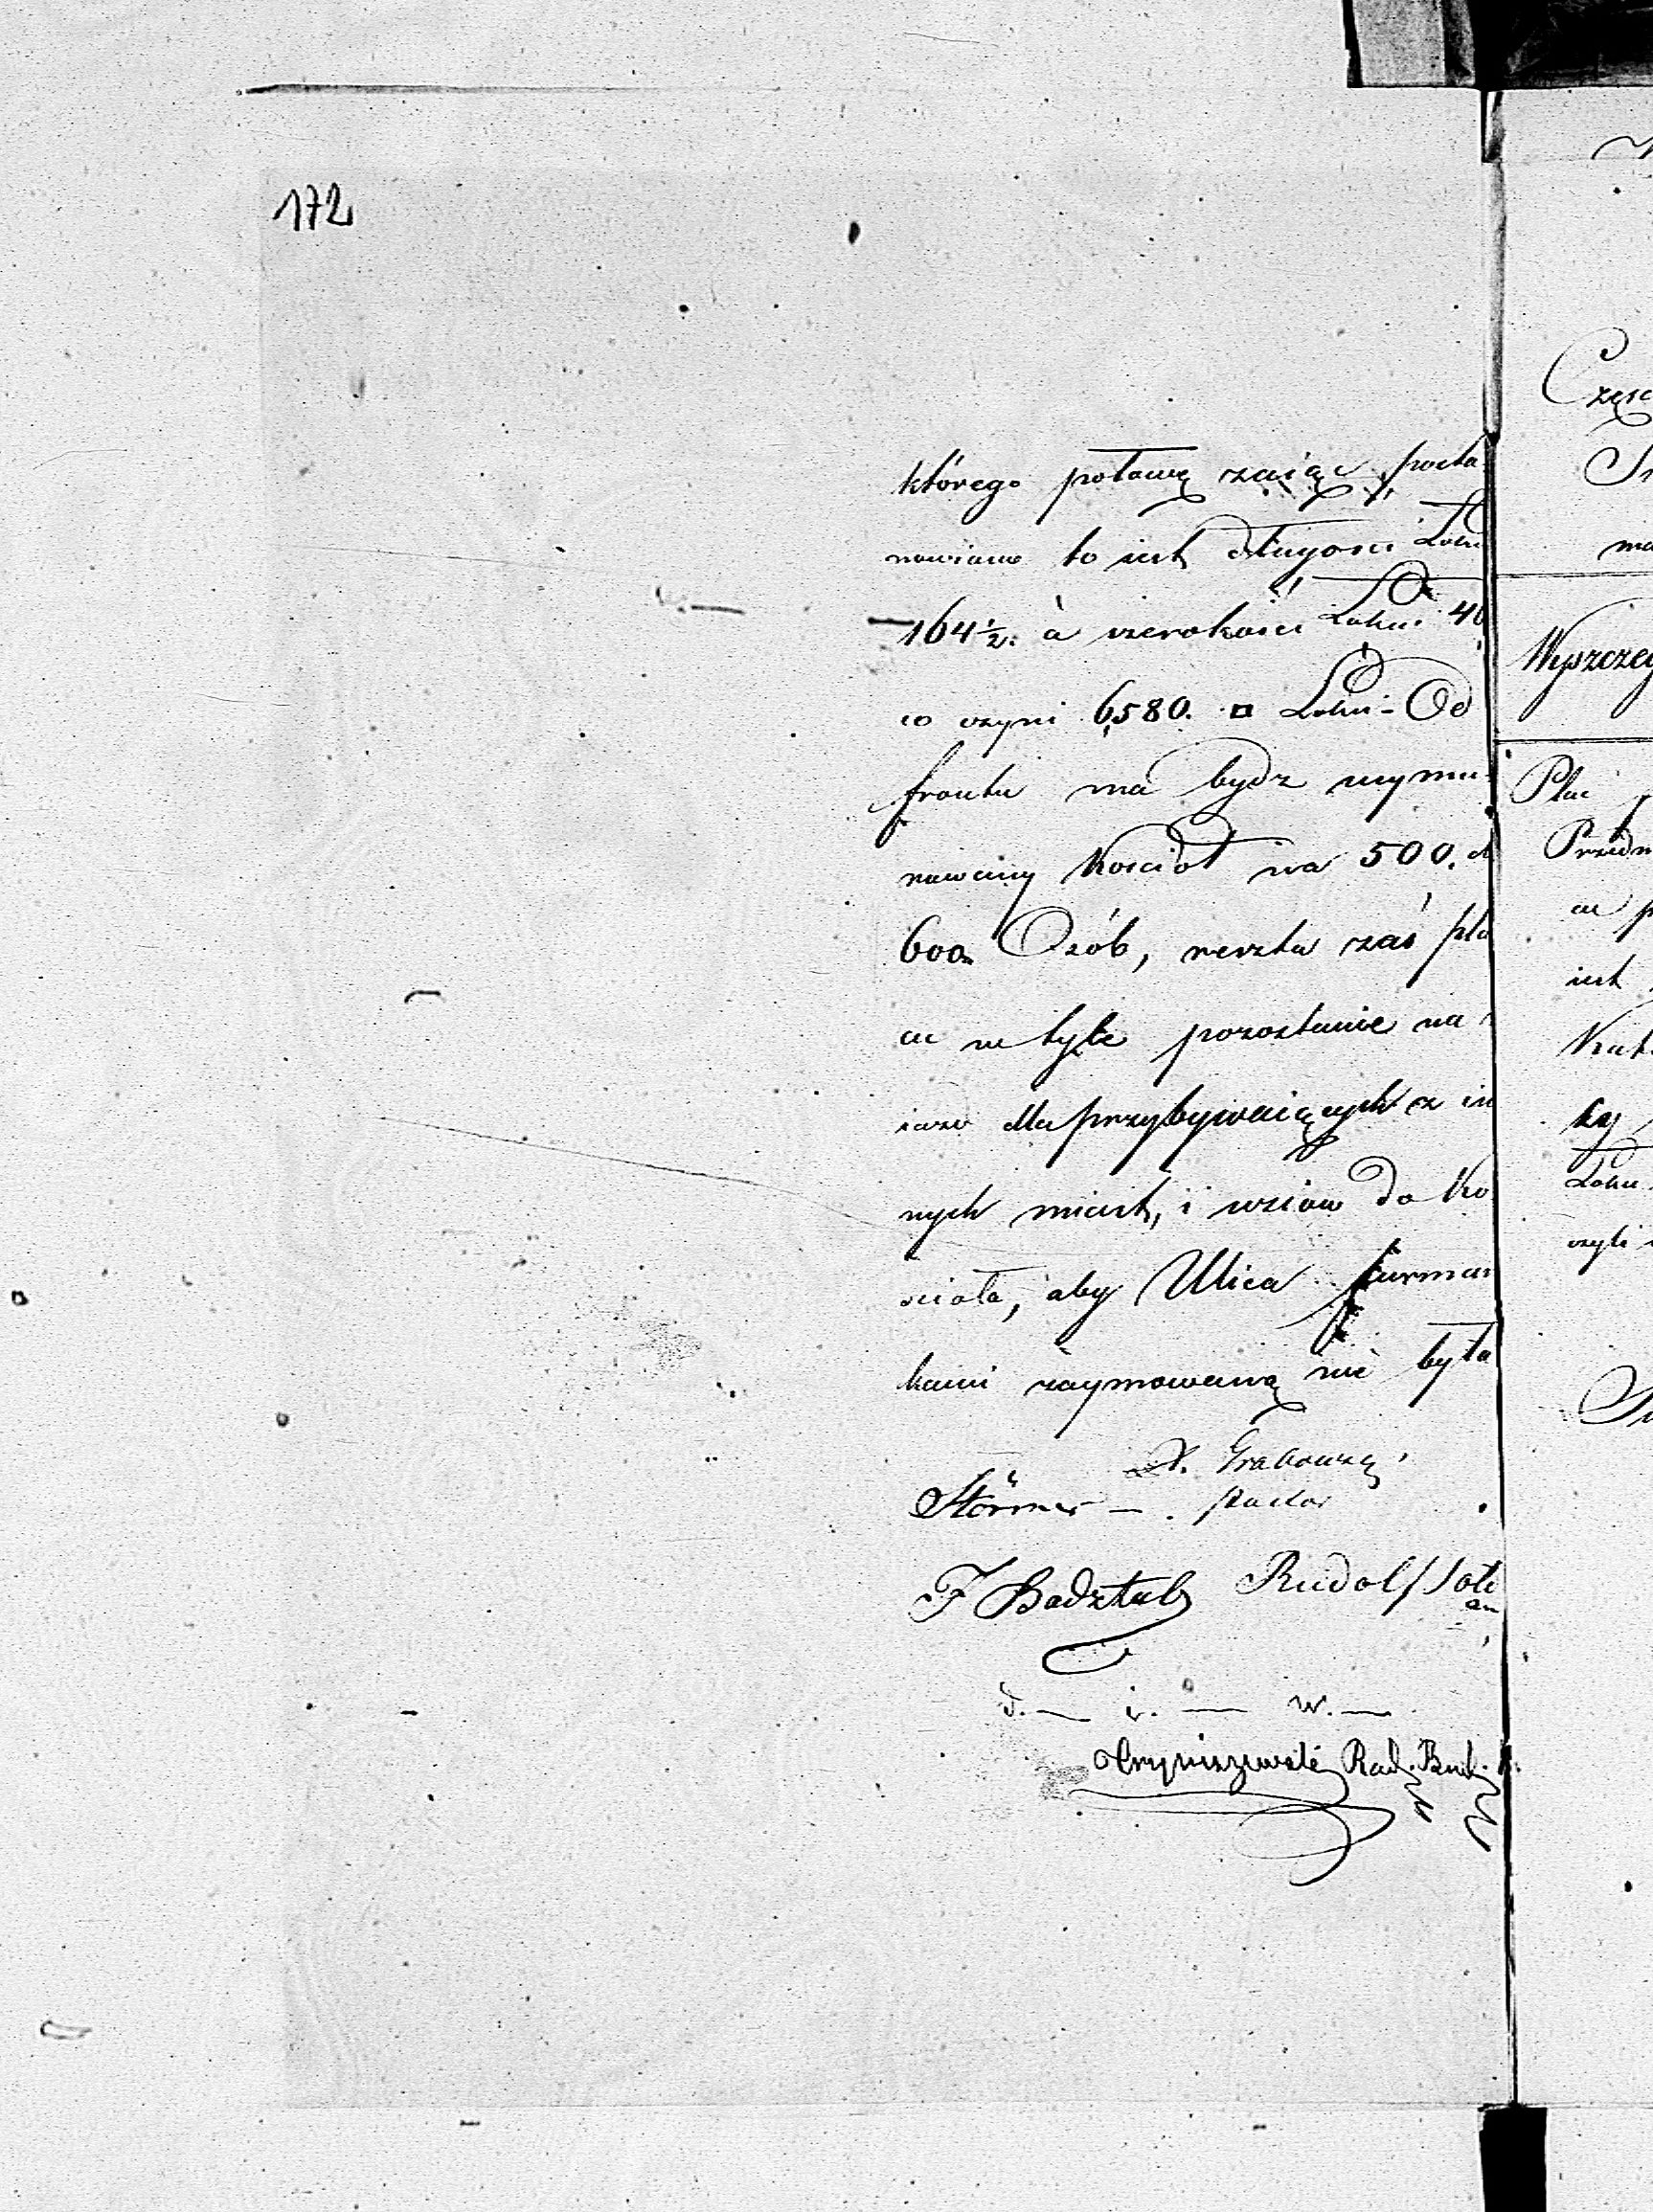 172
którego połowę zaiąć posta
nowiono to iest długosci Łokci
164½. à szerokości Łokci 40
co czyni 6,580. □ Łokci - Od
frontu ma bydz wymu-
rowany Kosciół na 500. d
600. Osób, reszta zaś pla
cu w tyle pozostanie na
iazd dla przybywaiących z in
nych miast, i wsiow do Ko
scioła, aby Ulica furman
kami zaymowaną nie była
X. Grabowski
Störmer — . Pastor
F Badztub Rudolf
d. — i. — w. —
Rad. Bud.
Częsc
Wyszczeg
Plac
Przedm
cu p
iest
Łokci
czyli